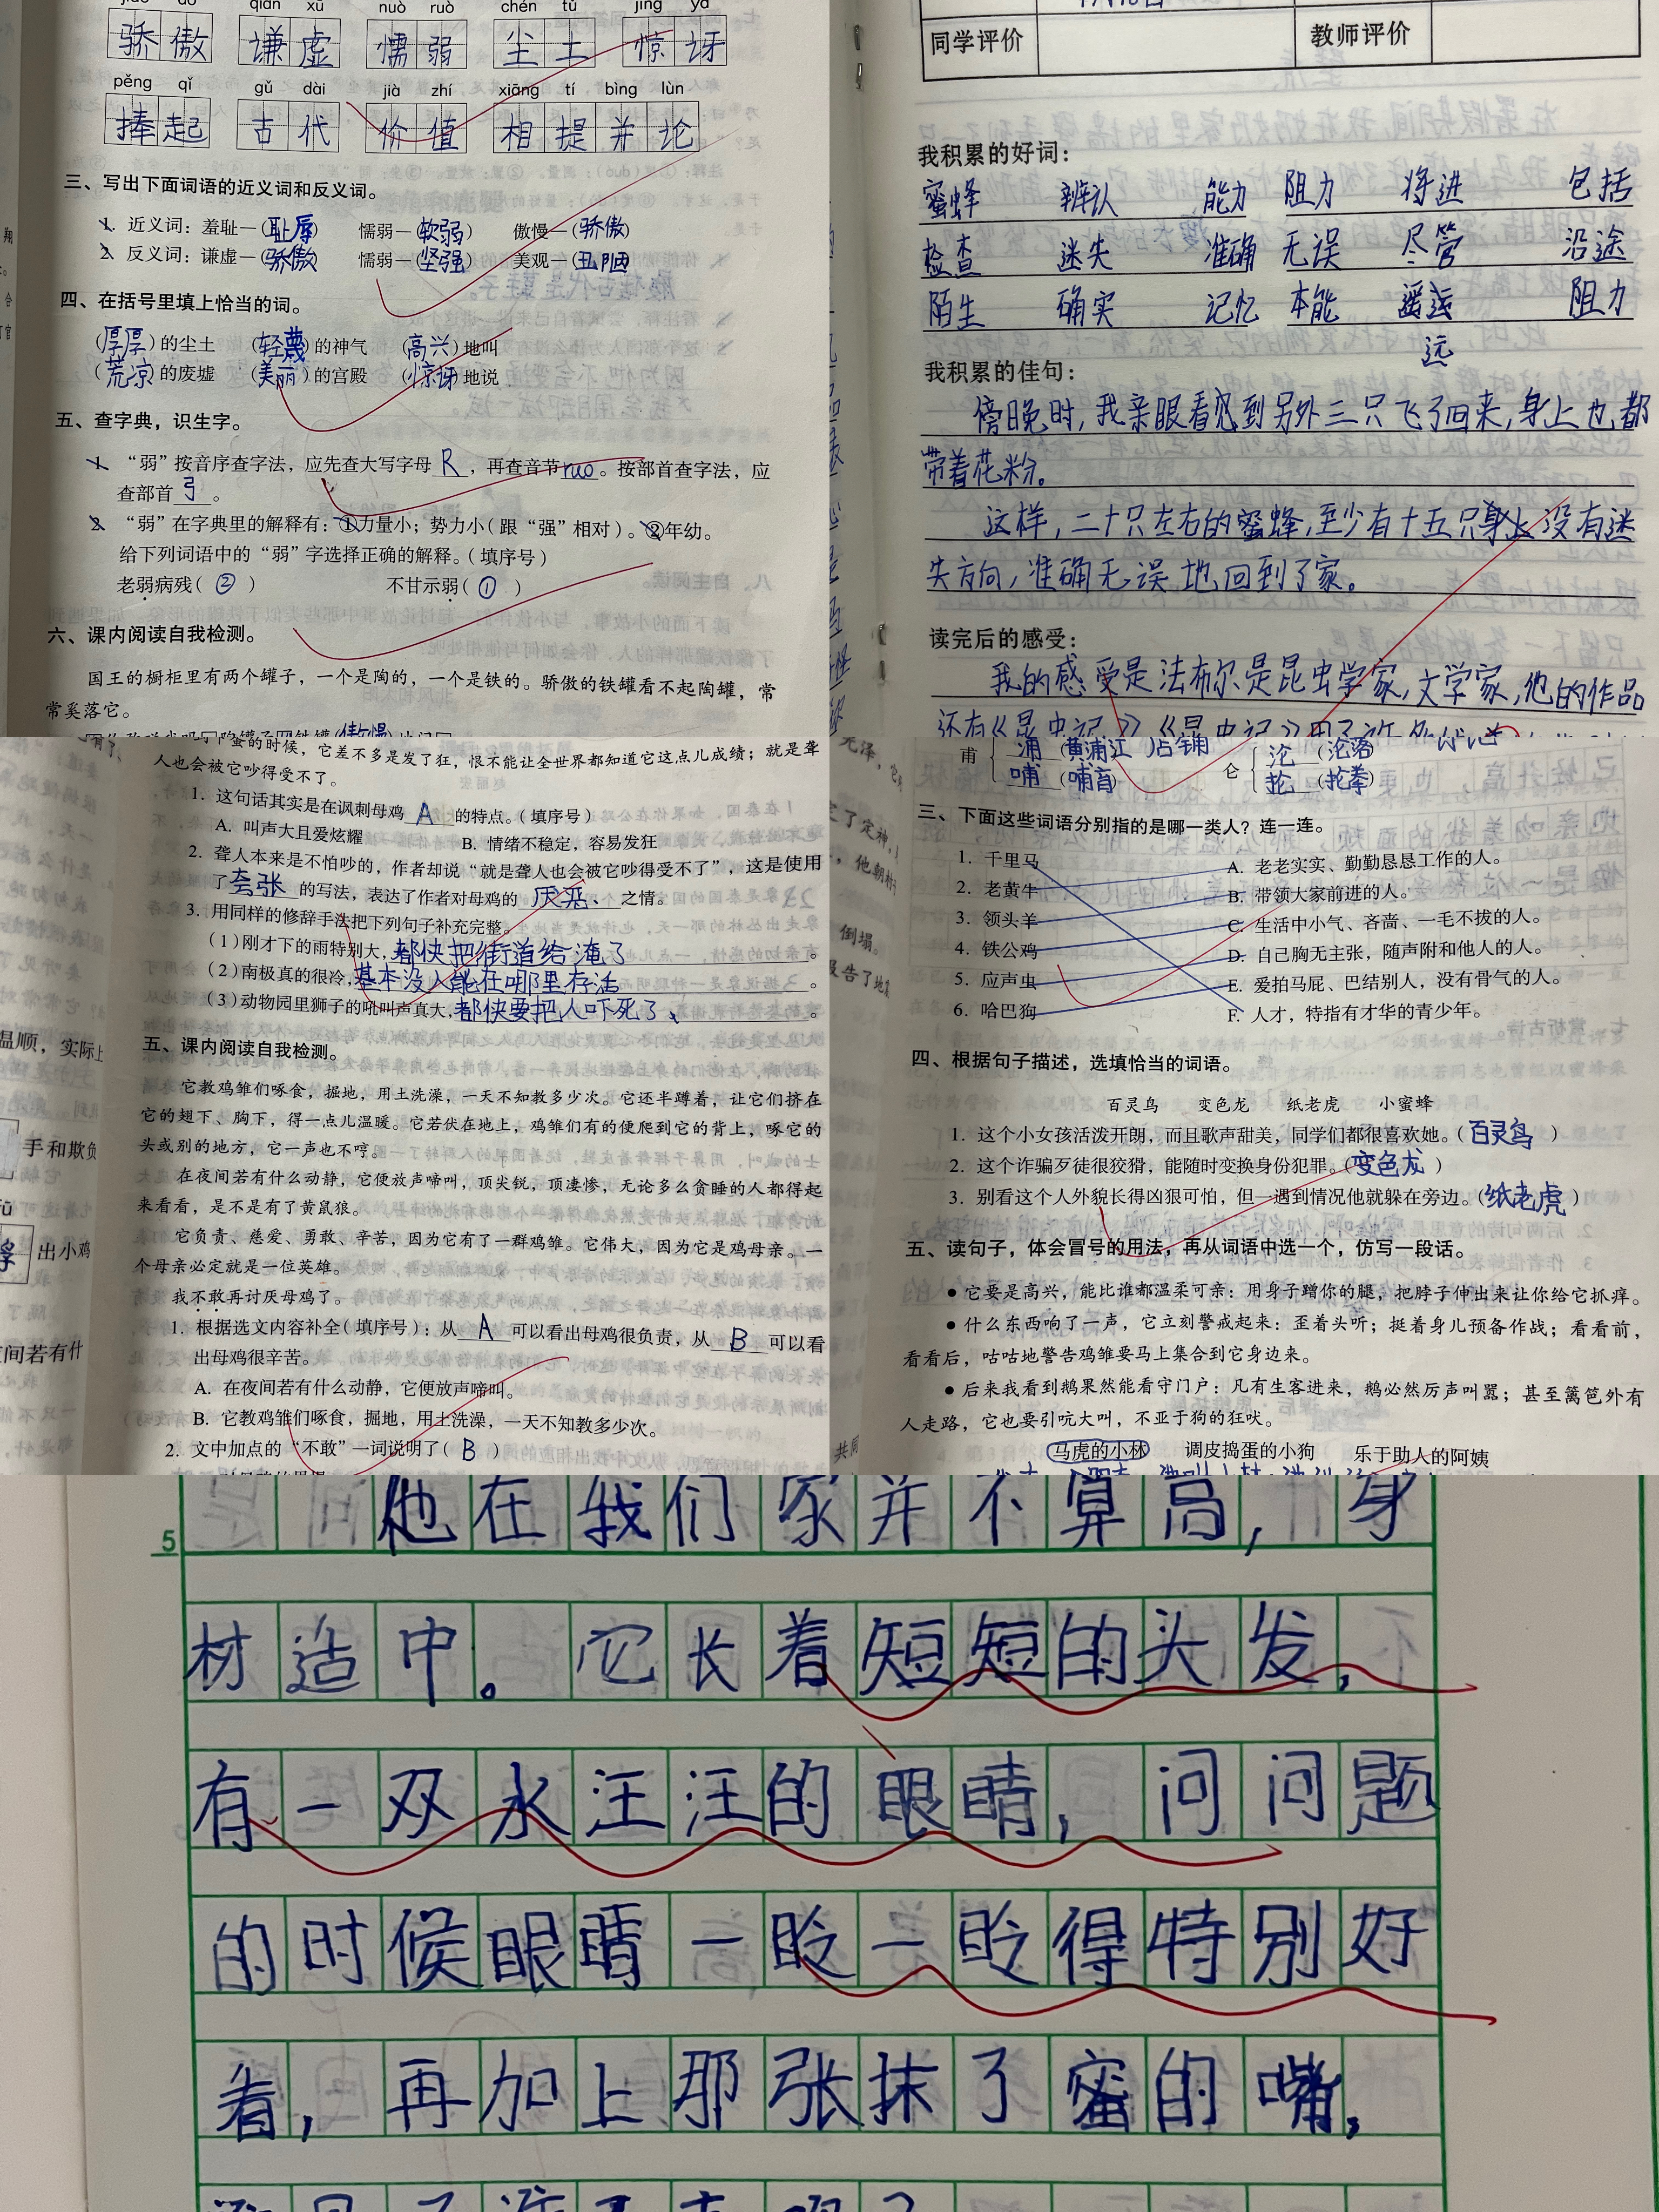 qiān xū nuò ruò chén tǔ jīng yà
骄傲 谦虚 懦弱 尘土 惊讶
pěng qǐ gǔ dài jià zhí xiāng tí bìng lùn
捧起 古代 价值 相提并论
三、写出下面词语的近义词和反义词。
1. 近义词：羞耻—(耻辱) 懦弱—(软弱) 傲慢—(骄傲)
2. 反义词：谦虚—(骄傲) 懦弱—(坚强) 美观—(丑陋)
四、在括号里填上恰当的词。
(厚厚)的尘土 (轻蔑)的神气 (高兴)地叫
(荒凉)的废墟 (美丽)的宫殿 (惊讶)地说
五、查字典，识生字。
1. “弱”按音序查字法，应先查大写字母 R ，再查音节ruo。按部首查字法，应
查部首 弓 。
2. “弱”在字典里的解释有：①力量小；势力小(跟“强”相对)。②年幼。
给下列词语中的“弱”字选择正确的解释。(填序号)
老弱病残( ② ) 不甘示弱( ① )
六、课内阅读自我检测。
国王的橱柜里有两个罐子，一个是陶的，一个是铁的。骄傲的铁罐看不起陶罐，常
常奚落它。
同学评价 教师评价
我积累的好词：
蜜蜂 辨认 能力 阻力 将进 包括
检查 迷失 准确 无误 尽管 沿途
陌生 确实 记忆 本能 遥远 阻力
远
我积累的佳句：
傍晚时，我亲眼看见到另外三只飞了回来，身上也都
带着花粉。
这样，二十只左右的蜜蜂，至少有十五只没有迷
失方向，准确无误地回到了家。
读完后的感受：
我的感受是法布尔是昆虫学家，文学家，他的作品
还有《昆虫记》《昆虫记》用了许多
蛋的时候，它差不多是发了狂，恨不能让全世界都知道它这点儿成绩；就是聋
人也会被它吵得受不了。
1. 这句话其实是在讽刺母鸡 A 的特点。(填序号)
A. 叫声大且爱炫耀 B. 情绪不稳定，容易发狂
2. 聋人本来是不怕吵的，作者却说“就是聋人也会被它吵得受不了”，这是使用
了夸张 的写法，表达了作者对母鸡的 厌恶、 之情。
3. 用同样的修辞手法把下列句子补充完整。
(1)刚才下的雨特别大，都快把街道给淹了 。
(2)南极真的很冷，基本没人能在哪里存活 。
(3)动物园里狮子的吼叫声真大，都快要把人吓死了、 。
五、课内阅读自我检测。
它教鸡雏们啄食，掘地，用土洗澡，一天不知教多少次。它还半蹲着，让它们挤在
它的翅下、胸下，得一点儿温暖。它若伏在地上，鸡雏们有的便爬到它的背上，啄它的
头或别的地方，它一声也不哼。
在夜间若有什么动静，它便放声啼叫，顶尖锐，顶凄惨，无论多么贪睡的人都得起
来看看，是不是有了黄鼠狼。
它负责、慈爱、勇敢、辛苦，因为它有了一群鸡雏。它伟大，因为它是鸡母亲。一
个母亲必定就是一位英雄。
我不敢再讨厌母鸡了。
1. 根据选文内容补全(填序号)：从 A 可以看出母鸡很负责，从 B 可以看
出母鸡很辛苦。
A. 在夜间若有什么动静，它便放声啼叫。
B. 它教鸡雏们啄食，掘地，用土洗澡，一天不知教多少次。
2. 文中加点的“不敢”一词说明了( B )
温顺，实际上
手和欺负
出小鸡
间若有什
倒塌。
甫 浦(黄浦江)占铺
哺(哺育)
仑 沦(沦落)
抡(抡拳)
三、下面这些词语分别指的是哪一类人？连一连。
1. 千里马 A. 老老实实、勤勤恳恳工作的人。
2. 老黄牛 B. 带领大家前进的人。
3. 领头羊 C. 生活中小气、吝啬、一毛不拔的人。
4. 铁公鸡 D. 自己胸无主张，随声附和他人的人。
5. 应声虫 E. 爱拍马屁、巴结别人，没有骨气的人。
6. 哈巴狗 F. 人才，特指有才华的青少年。
四、根据句子描述，选填恰当的词语。
百灵鸟 变色龙 纸老虎 小蜜蜂
1. 这个小女孩活泼开朗，而且歌声甜美，同学们都很喜欢她。(百灵鸟 )
2. 这个诈骗歹徒很狡猾，能随时变换身份犯罪。(变色龙 )
3. 别看这个人外貌长得凶狠可怕，但一遇到情况他就躲在旁边。(纸老虎 )
五、读句子，体会冒号的用法，再从词语中选一个，仿写一段话。
● 它要是高兴，能比谁都温柔可亲：用身子蹭你的腿，把脖子伸出来让你给它抓痒。
● 什么东西响了一声，它立刻警戒起来：歪着头听；挺着身儿预备作战；看看前，
看看后，咕咕地警告鸡雏要马上集合到它身边来。
● 后来我看到鹅果然能看守门户：凡有生客进来，鹅必然厉声叫嚣；甚至篱笆外有
人走路，它也要引吭大叫，不亚于狗的狂吠。
马虎的小林 调皮捣蛋的小狗 乐于助人的阿姨
5
他在我们家并不算高，身
材造中。它长着短短的头发，
有一双水汪汪的眼睛，问问题
的时候眼睛一眨一眨得特别好
看，再加上那张抹了蜜的嘴，